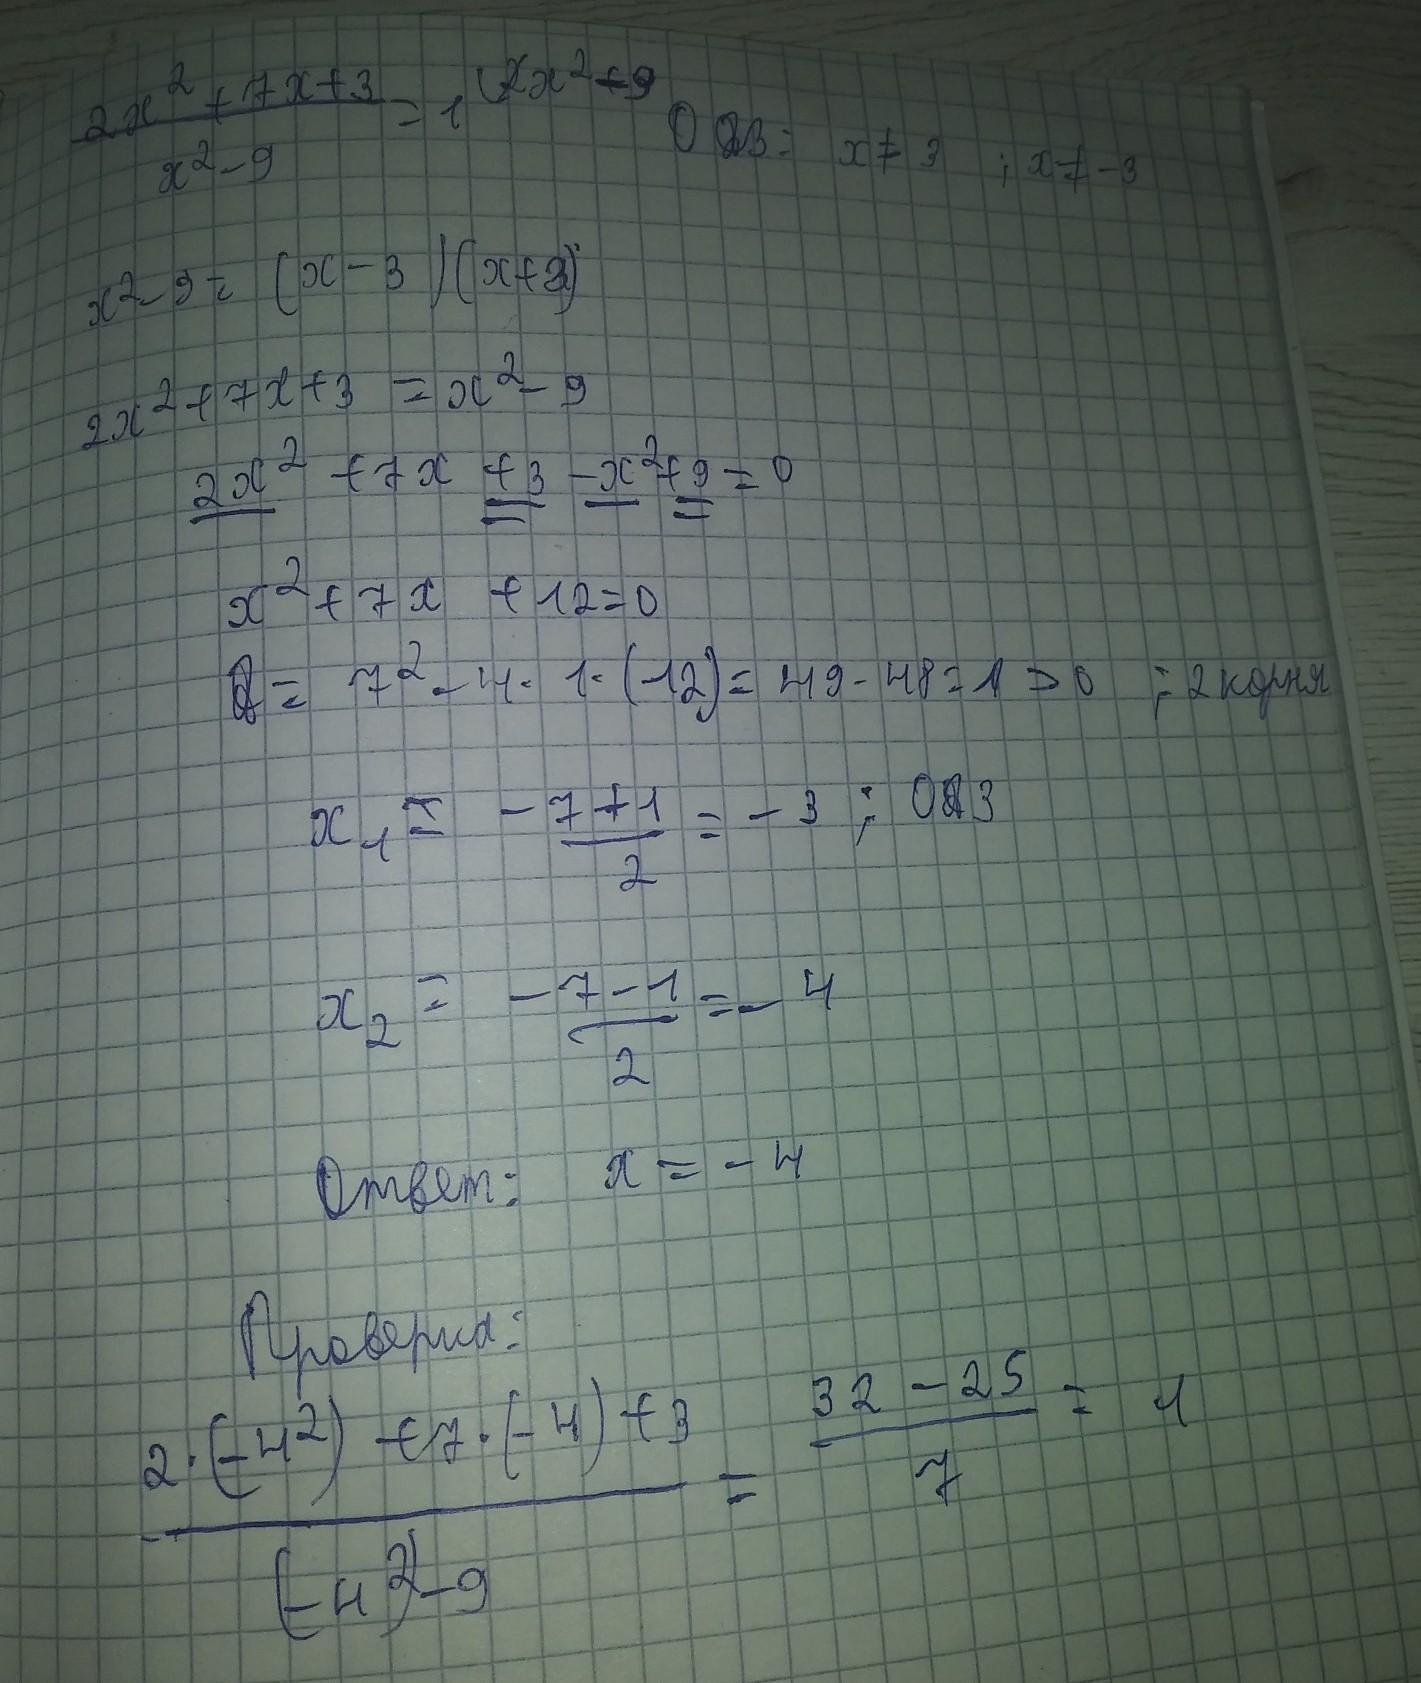 2x² + 7x + 3 / x² - 9 = 1 ОДЗ: x ≠ 3 ; x ≠ -3
x² - 9 = (x - 3)(x + 3)
2x² + 7x + 3 = x² - 9
2x² + 7x + 3 - x² + 9 = 0
x² + 7x + 12 = 0
D = 7² - 4 · 1 · (12) = 49 - 48 = 1 > 0 ; 2 корня
x₁ = -7 + 1 / 2 = -3 ; ОДЗ
x₂ = -7 - 1 / 2 = -4
Ответ: x = -4
Проверка:
2 · (-4²) + 7 · (-4) + 3 / (-4²) - 9 = 32 - 25 / 7 = 1